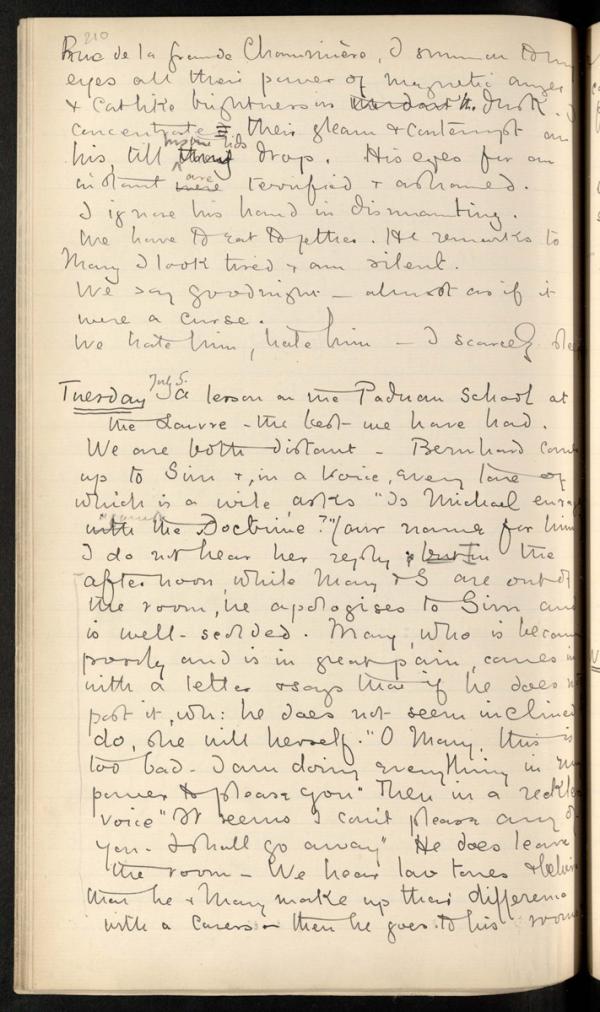 210
Rue de la Grande Chaumière, I summon to my
eyes all their power of magnetic anger
& catlike brightness in the dusk. I
concentrate their gleam & contempt on
insane lids
his, till they drop. His eyes for an
are
instant were terrified & ashamed.
I ignore his hand in dismounting.
We have to eat together. He remarks to
Mary I look tired & am silent.
We say goodnight — almost as if it
were a curse.
We hate him, hate him — I scarcely
July 5.
Tuesday a lesson on the Paduan School at
the Louvre - the best we have had.
We are both distant - Bernhard comes
up to Sim &, in a voice, every tone of
which is a wile, asks "Is Michael
with the Doctrine?" (our name for him
I do not hear her reply & but in the
afternoon, while Mary & S are out of
the room, he apologises to Sim and
is well-scolded. Mary, who is
poorly and is in great pain, comes in
with a letter & says that if he does
post it, wh: he does not seem inclined
do, she will herself. "O Mary, this is
too bad - I am doing everything in my
power to please you" Then in a
voice "It seems I can't please any of
you - I shall go away" He does leave
the room — We hear low tones &
that he & Mary make up their difference
with a caress — then he goes to his room